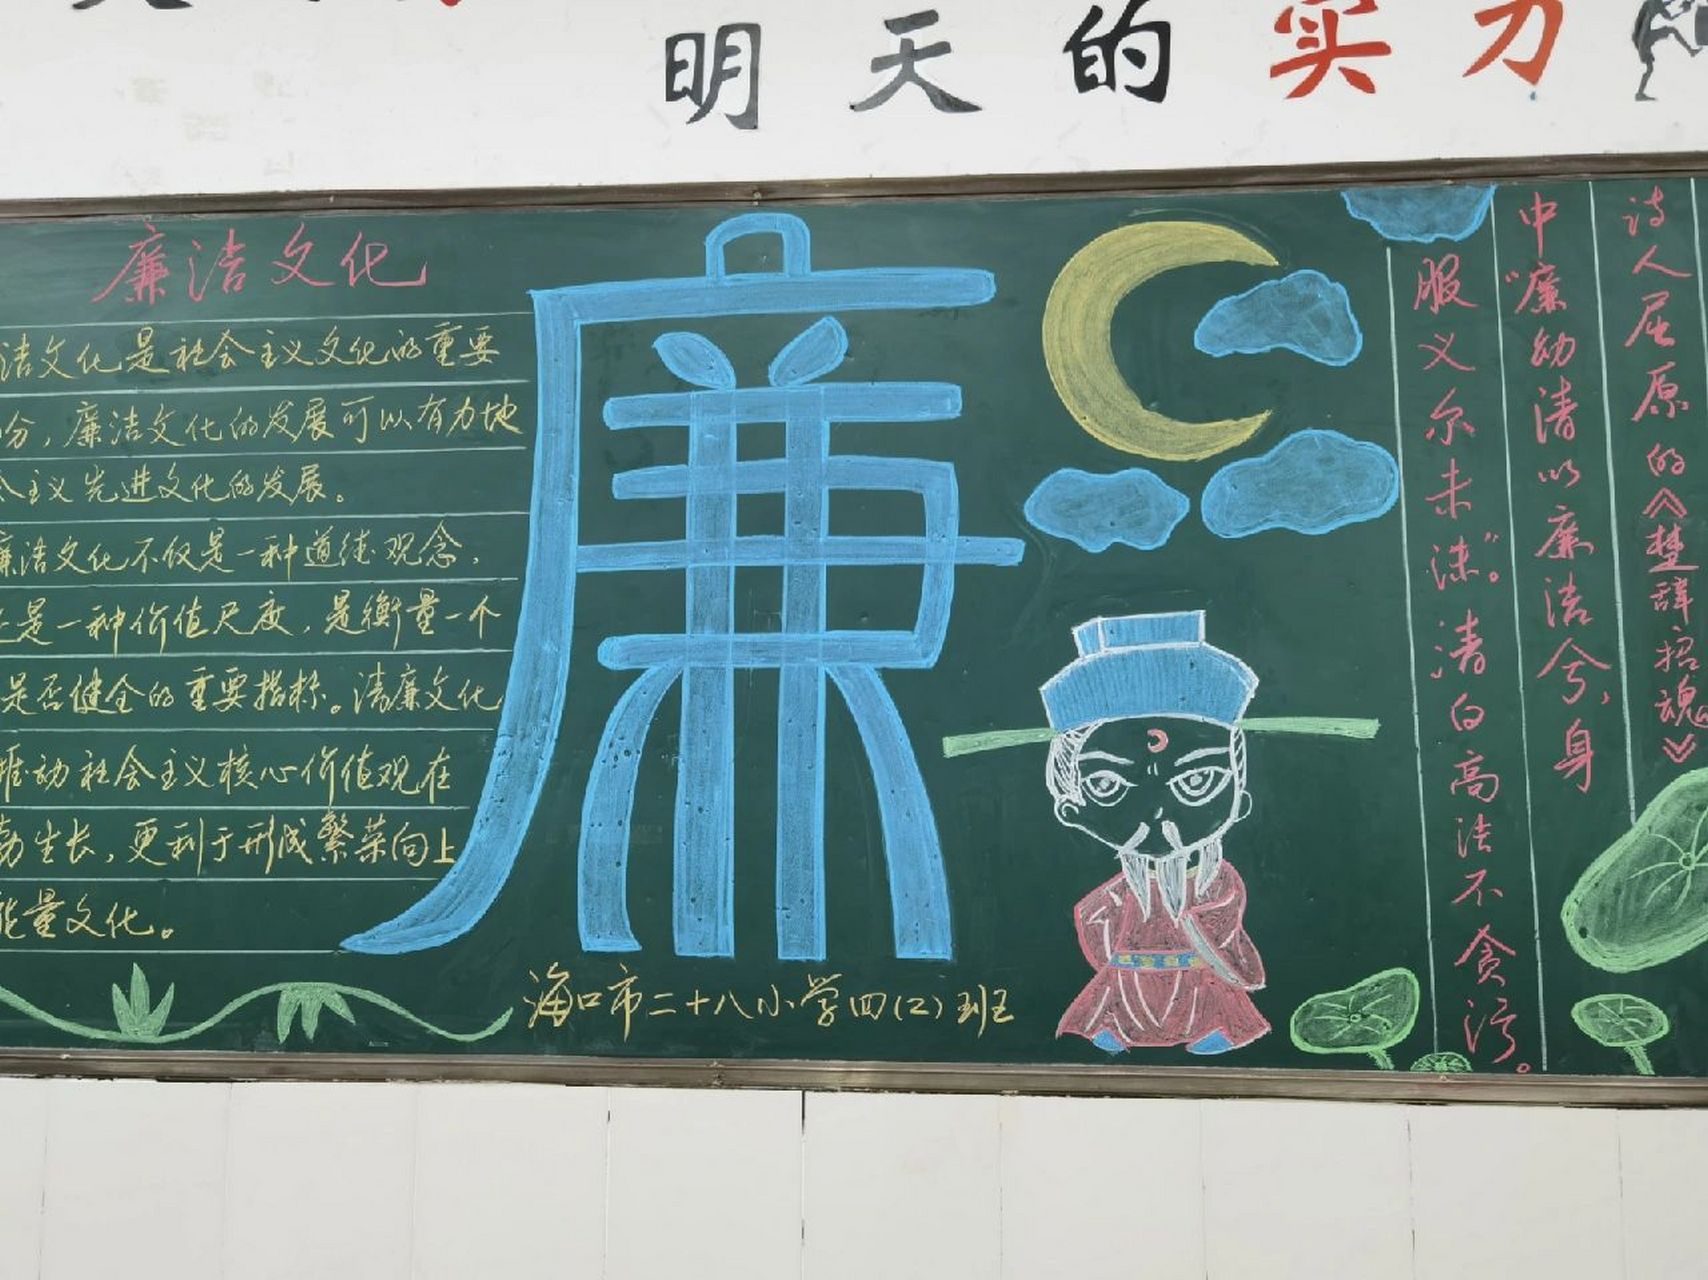 明天的实力
廉洁文化
洁文化是社会主义文化的重要
分，廉洁文化的发展可以有力地
会主义先进文化的发展。
廉洁文化不仅是一种道德观念，
是一种价值尺度，是衡量一个
是否健全的重要指标。清廉文化
推动社会主义核心价值观在
勃生长，更利于形成繁荣向上
能量文化。
廉
海口市二十八小学四(2)班
诗人屈原的《楚辞招魂》
中“廉幼清以廉洁兮，身
服义尔未沫”。清白高洁不贪污。